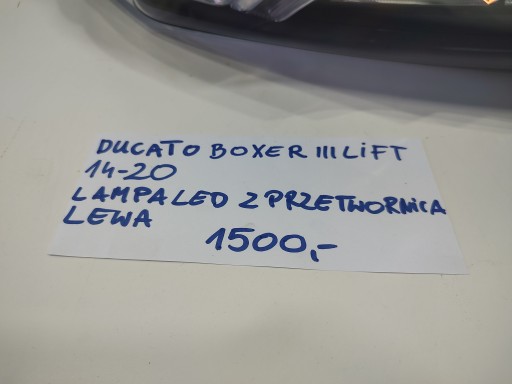 DUCATO BOXER III LiFT
14-20
LAMPA LED Z PRZETWORNiCA
LEWA
1500,-